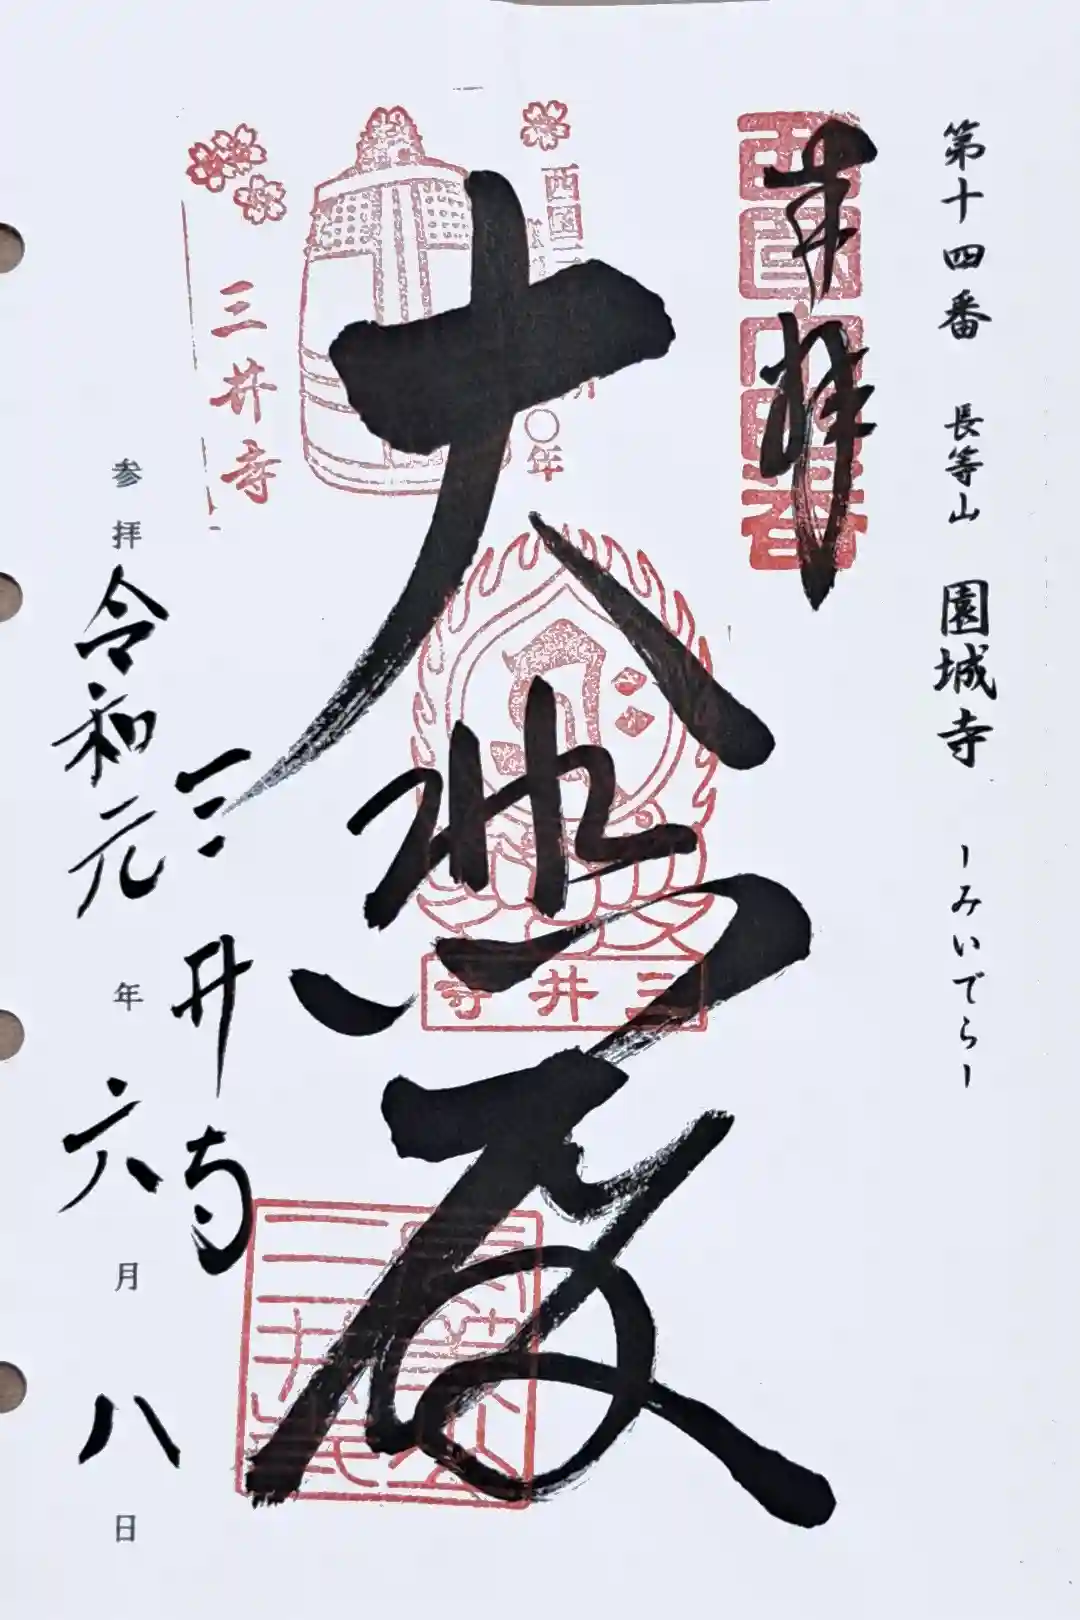 第十四番 長等山 園城寺 ーみいでらー
奉拝
西国十四番
大悲殿
三井寺
三井寺
三井寺
参拝 令和元年 六月 八日